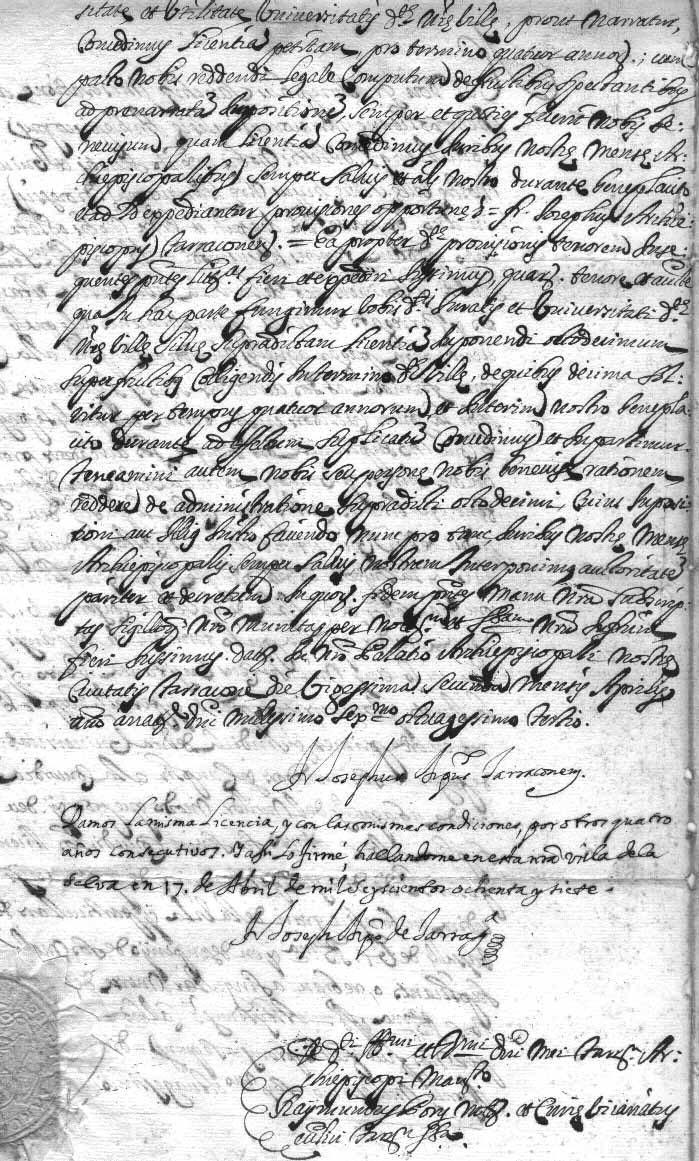 sitate et Utilitate Universitatis d.ᵉ Nrę Villę, prout Narratur,
Concedimus Licentiã petitam, pro termino quatuor annor̃.; cum
pacto nobis reddendi legale Computum de fructibus spectantibus
ad prenarratã Impositionẽ, semper et quoties
quam Licentiã Concedimus Juribus Nostrę Mensę Ar-
chiepiscopalibus semper salvis et nostro durante beneplacito
et ad id expediantur provisiones opportunę = fr. Josephus Archie-
piscopus Tarraconen. = Ea propter d.ᵉ provisionis tenorem Inse-
quentes pñtes fieri et expediri Jussimus, quar̃. tenore et aucte
qua In hac parte fungimur vobis d.ⁱˢ Juratis et Universitati d.ᵉ
Nrę Villę Silvę supradictam Licentiã Imponendi octodecimum
super fructibus Colligendis In termino d.ᵉ Villę, de quibus decima sol-
vitur per tempus quatuor annorum, et Interim nostro benepla-
cito durante, ad Concedimus et Impartimur.
Teneamini autem nobis seu persone nobis rationem
reddere de administratione supradicti octodecimi, Cuius Imposi-
tioni nunc pro tunc Juribus Nostrę Mensę
Archiepiscopalis semper salvis Nostram Interponimus autoritatẽ
pariter et decretum. In quor̃. fidem pñtes Manu Nrã subscrip-
tas Sigilloq̃ Nrõ Munitas per Nrã
fieri Jussimus. Dat̃. In Nrõ Palatio Archiepiscopali Nostrę
Civitatis Tarracone die Vigessima Secunda Mensis Aprilis
anno a nat.ᵉ dni Millesimo Sex.ᵐᵒ octuagessimo tertio.
fr Josephus Arqᵘˢ Tarraconen.
Damos la misma Licencia, y con las mismas condiciones, por otros quatro
años consecutivos. Y asi lo firmé hallandome en esta nrã villa de la
Selva en 17. de Abril de mil seyscientos ochenta y siete.
fr Joseph Arpo de Tarragᵃ
De d.ⁱ Illᵐⁱ et Rᵐⁱ dñi Mei Tarrac̃. Ar-
chiepiscopi Mandᵗᵒ
Raymundus Not.